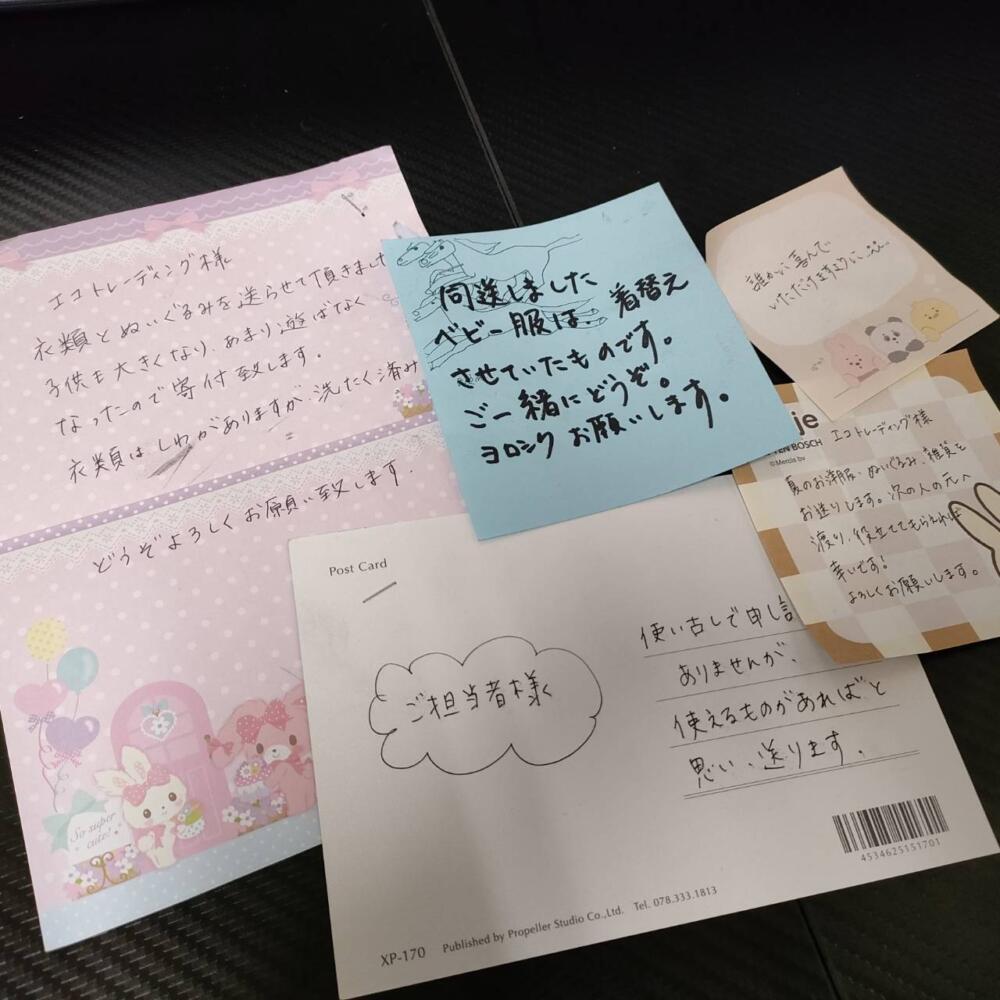 エコトレーディング様
衣類とぬいぐるみを送らせて頂きました
子供も大きくなり、あまり遊ばなく
なったので寄付致します。
衣類はしわがありますが、洗たく済み
どうぞよろしくお願い致します.
So super
cute!
同送しました
ベビー服は、着替え
させていたものです。
ご一緒にどうぞ。
ヨロシク お願いします。
誰かに喜んで
いただけますように…
je
TEN BOSCH
© Mercis bv
エコトレーディング様
夏のお洋服・ぬいぐるみ、雑貨を
お送りします。次の人の元へ
渡り、役立ててもらえれば
幸いです!
よろしくお願いします。
Post Card
ご担当者様へ
使い古しで申し訳
ありませんが、
使えるものがあればと
思い、送ります。
4534625151701
XP-170 Published by Propeller Studio Co.,Ltd. Tel. 078.333.1813